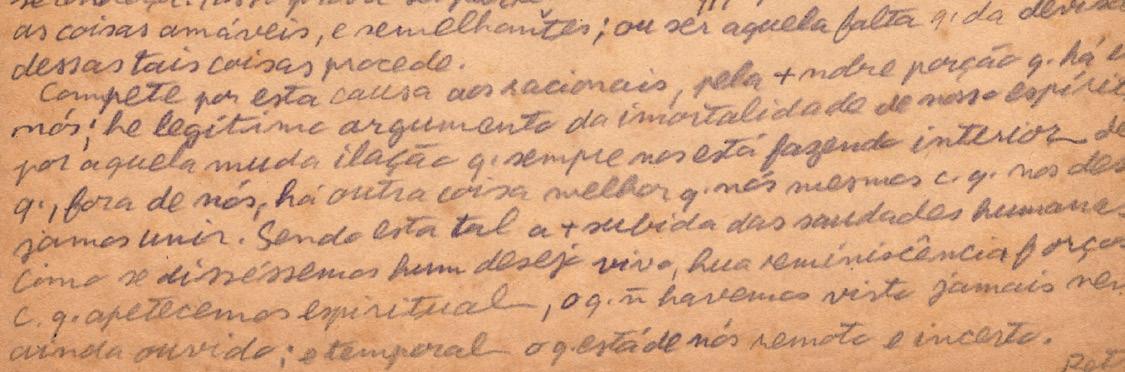 as coisas amáveis, e semelhantes; ou ser aquela falta q. da devisa
dessas tais coisas procede.
Compete por esta causa aos racionais, pela + nobre porção q. há e
nós; he legítimo argumento da imortalidade de nosso espírit
por aquela muda ilação q. sempre nos está fazendo interior de
q., fora de nós, há outra coisa melhor q. nós mesmos c. q. nos des
jamos unir. Sendo esta tal a + subida das saudades humana
Como se disséssemos hum desejo vivo, hua reminiscência força
c. q. apetecemos espiritual, o q. ñ havemos visto jamais nem
ainda ouvido; e temporal o q. está de nós remoto e incerto.